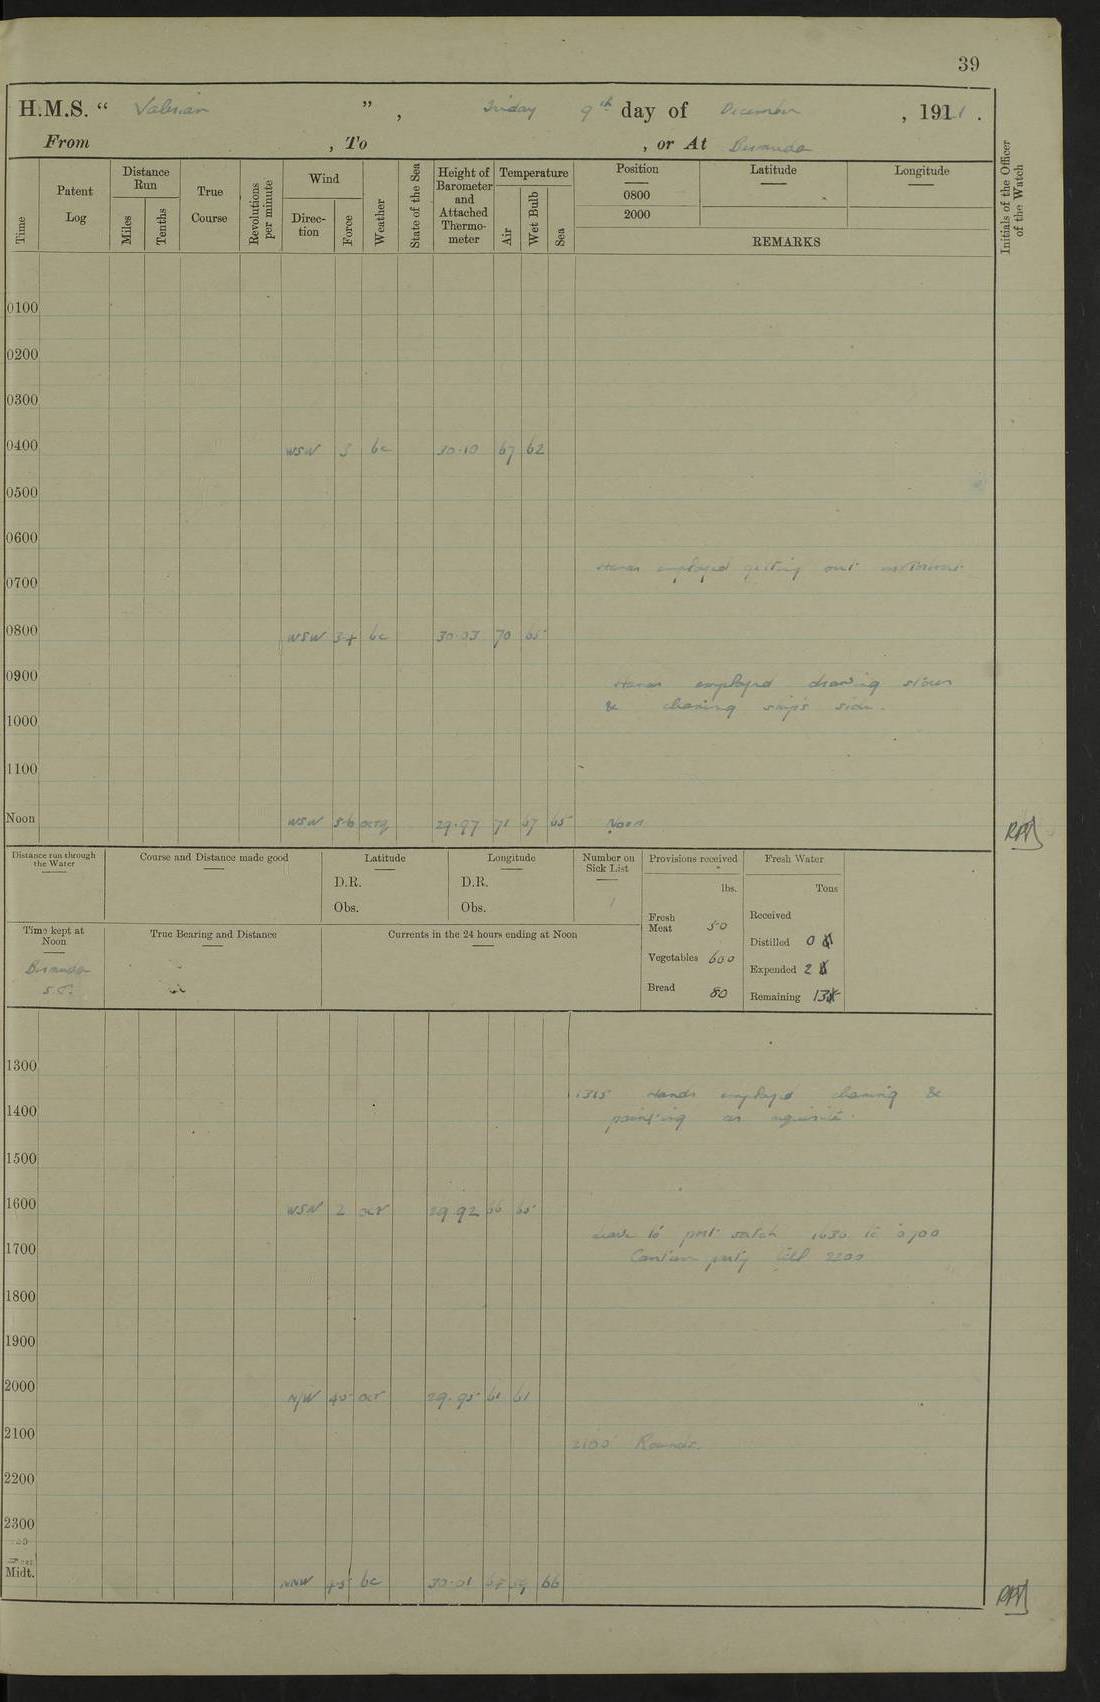 39
H.M.S. " Valerian ", Friday 9th day of December, 191 1.
From , To , or At Bermuda
Time
Patent Log
Distance Run
Miles
Tenths
True Course
Revolutions per minute
Wind
Direction
Force
Weather
State of the Sea
Height of Barometer and Attached Thermometer
Temperature
Air
Wet Bulb
Sea
Position
0800
2000
Latitude
Longitude
REMARKS
Initials of the Officer of the Watch
0100
0200
0300
0400 WSW 3 bc 30.10 67 62
0500
0600
Hands employed getting out
0700
0800 WSW 3-4 bc 30.03 70 65
0900 Hands employed drawing stores
& cleaning ship's side.
1000
1100
Noon WSW 5-6 ocrq 29.97 71 67 65 Noon
Distance run through the Water
Course and Distance made good
Latitude
D.R.
Obs.
Longitude
D.R.
Obs.
Number on Sick List
1
Provisions received
lbs.
Fresh Meat 50
Vegetables 600
Bread 80
Fresh Water
Tons
Received
Distilled 0
Expended 2
Remaining 13
Time kept at Noon
Bermuda
S.T.
True Bearing and Distance
Currents in the 24 hours ending at Noon
1300
1315 Hands employed cleaning &
painting as requisite.
1400
1500
1600 WSW 2 ocr 29.92 66 65
Leave to port watch 1630 to 0700
Canteen party till 2200
1700
1800
1900
2000 N/W 4-5 ocr 29.95 61 61
2100 2100 Rounds.
2200
2300
Midt. NNW 4-5 bc 30.01 59 66